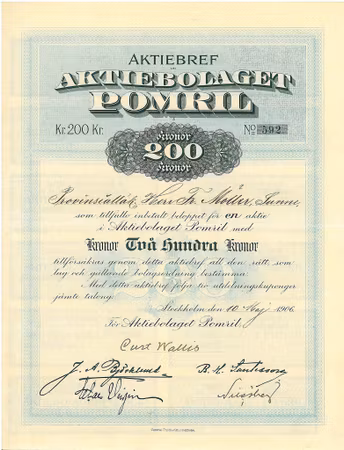 AKTIEBREF
AKTIEBOLAGET
POMRIL
Kr. 200 Kr. No 592
kronor
200
kronor
Provinsialläk. Herr Fr. Möller, Sunne,
som tillfullo inbetalt beloppet för en aktie
i Aktiebolaget Pomril med
Kronor Två Hundra Kronor
tillförsäkras genom detta aktiebref all den rätt, som
lag och gällande bolagsordning bestämma.
Med detta aktiebref följa tio utdelningskuponger
jämte talong.
Stockholm den 10 Maj 1906.
För Aktiebolaget Pomril.
Curt Wallis
J. A. Björklund B. H. Santesson